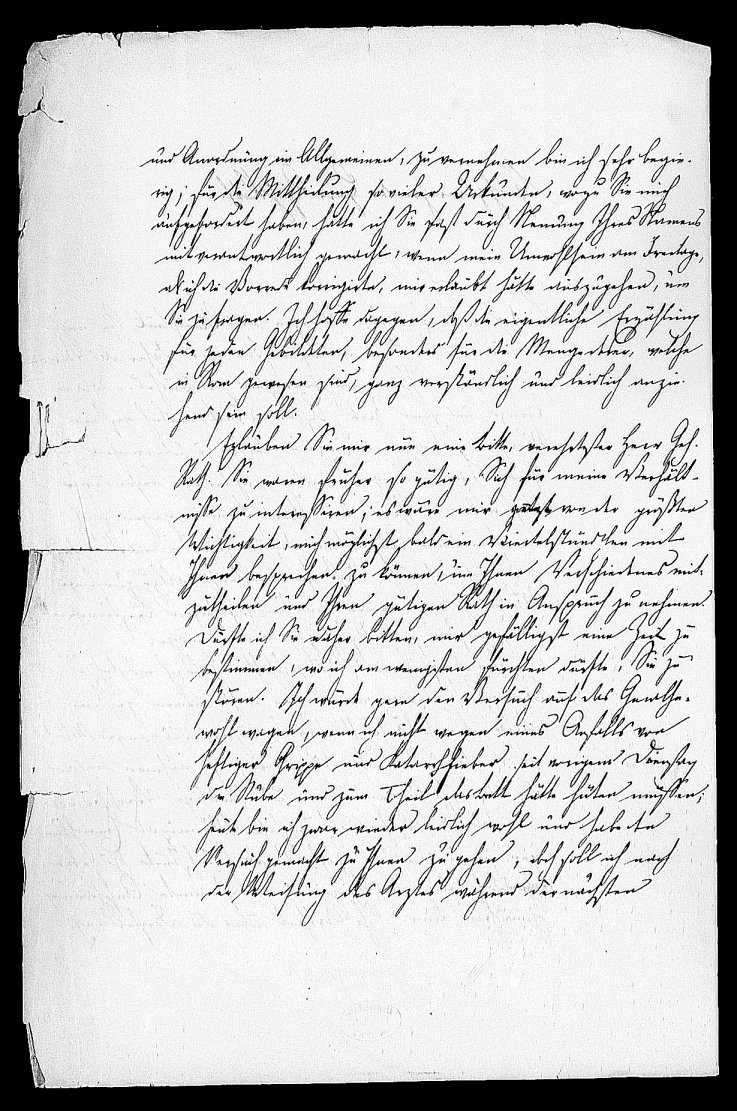 und Anordnung im Allgemeinen, zu vernehmen bin ich sehr begie-
rig; für die Mittheilung so vieler Urkunden, wozu Sie mich
aufgefordert haben, hätte ich Sie fast durch Nennung Ihres Namens
mitverantwortlich gemacht, wenn mein Unwohlsein am Freitage,
als ich die Vorrede korrigirte, mir erlaubt hätte auszugehen, um
Sie zu fragen. Ich hoffe dagegen, daß die eigentliche Erzählung
für jeden Gebildeten, besonders für die Menge derer, welche
in Rom gewesen sind, ganz verständlich und leidlich anzie-
hend sein soll.
Erlauben Sie mir nun eine Bitte, verehrtester Herr Geh.
Rath. Sie waren früher so gütig, Sich für meine Verhält-
nisse zu interessiren; es wäre mir jetzt von der größten
Wichtigkeit, mich möglichst bald ein Viertelstündchen mit
Ihnen besprechen zu können, um Ihnen Verschiedenes mit-
zutheilen und Ihren gütigen Rath in Anspruch zu nehmen.
Dürfte ich Sie daher bitten, mir gefälligst eine Zeit zu
bestimmen, wo ich am wenigsten fürchten dürfte, Sie zu
stören. Ich würde gern den Versuch auf das Gerathe-
wohl wagen, wenn ich nicht wegen eines Anfalls von
heftiger Grippe und Katarrhfieber seit vorigem Dienstag
die Stube und zum Theil das Bett hätte hüten müssen;
heute bin ich zwar wieder leidlich wohl und habe den
Versuch gemacht zu Ihnen zu gehen, doch soll ich nach
der Weisung des Arztes während der nächsten